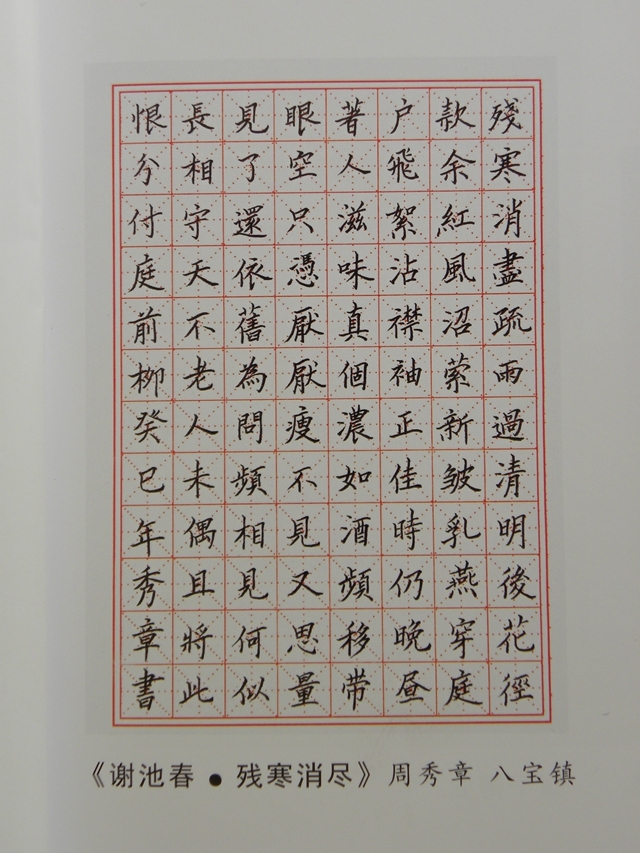 殘寒消盡疏雨過清明後花徑
款余紅風沼萦新皺乳燕穿庭
户飛絮沾襟袖正佳時仍晚昼
著人滋味真個濃如酒頻移带
眼空只慿厭厭瘦不見又思量
見了還依舊為問頻相見何似
長相守天不老人未偶且將此
恨分付庭前柳癸巳年秀章書
《谢池春●残寒消尽》周秀章 八宝镇